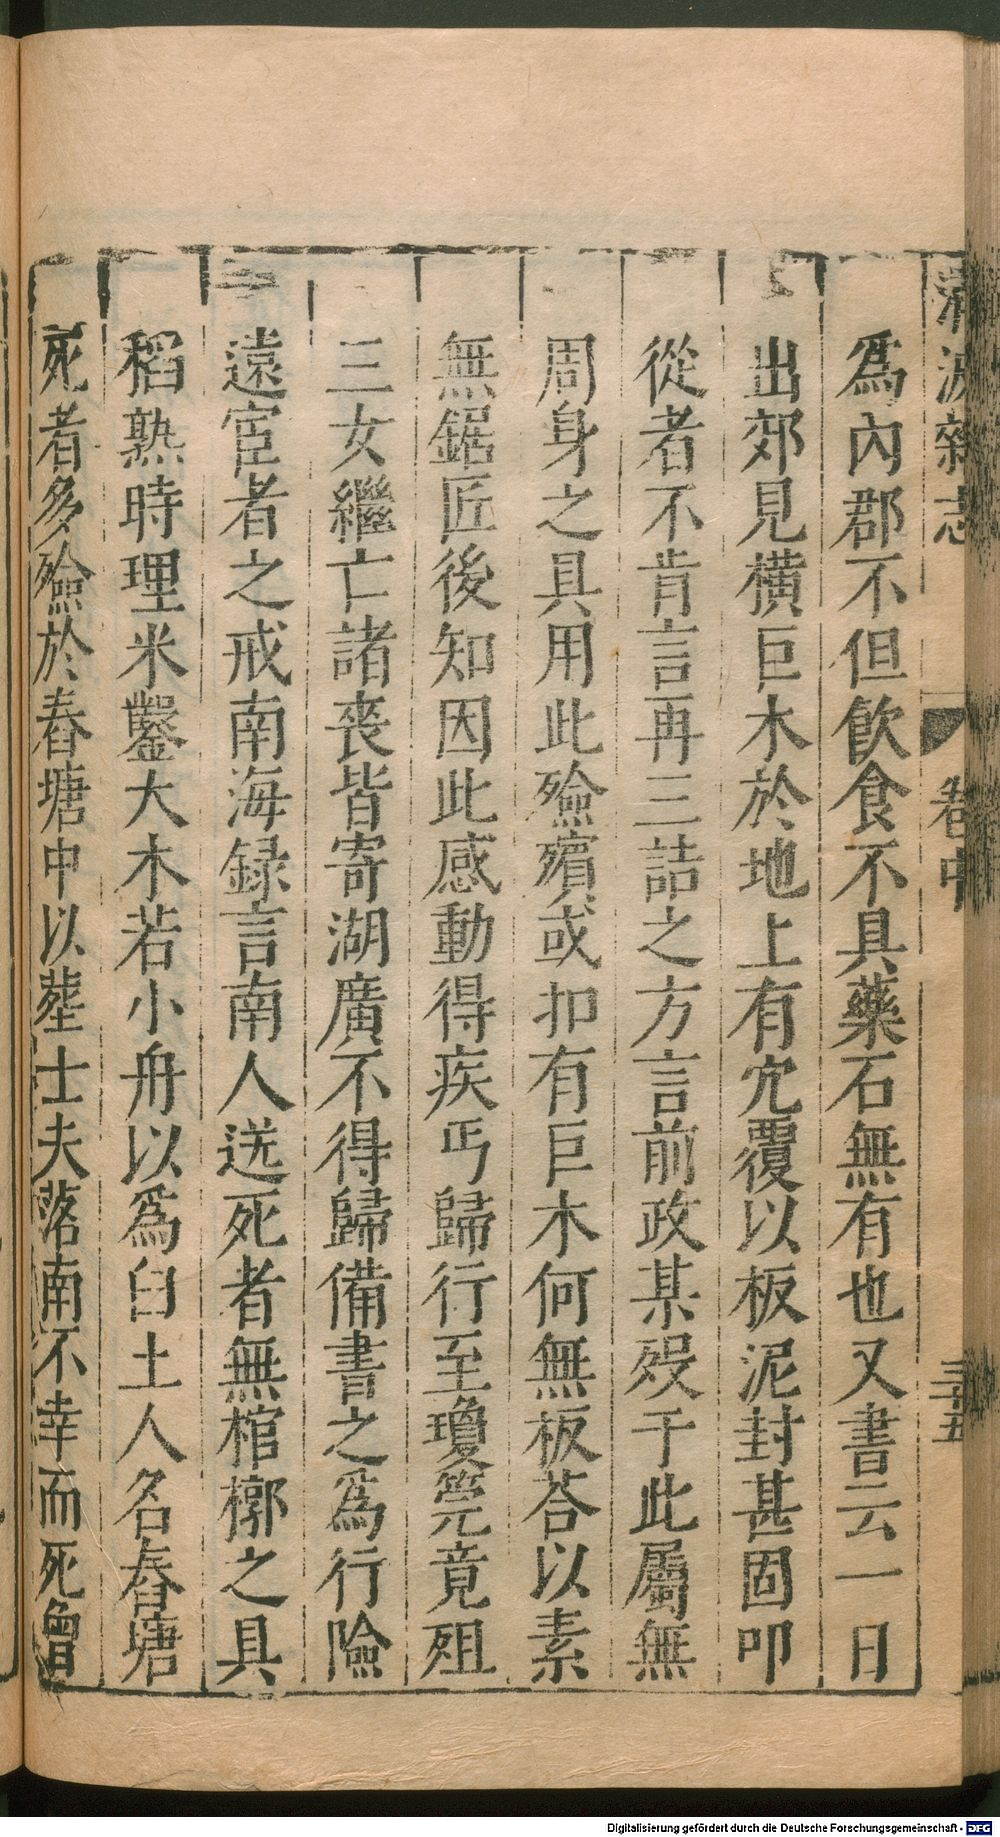 清波雜志
卷中
三十五
爲內郡不但飲食不具藥石無有也又書云一日
出郊見橫巨木於地上有穴覆以板泥封甚固叩
從者不肯言再三詰之方言前政某歿于此屬無
周身之具用此殮殯或扣有巨木何無板荅以素
無鋸匠後知因此感動得疾丐歸行至瓊筦竟殂
三女繼亡諸喪皆寄湖廣不得歸備書之爲行險
遠宦者之戒南海録言南人送死者無棺槨之具
稻熟時理米鑿大木若小舟以爲臼土人名舂塘
死者多殮於舂塘中以塟士夫落南不幸而死曾
Digitalisierung gefördert durch die Deutsche Forschungsgemeinschaft - DFG